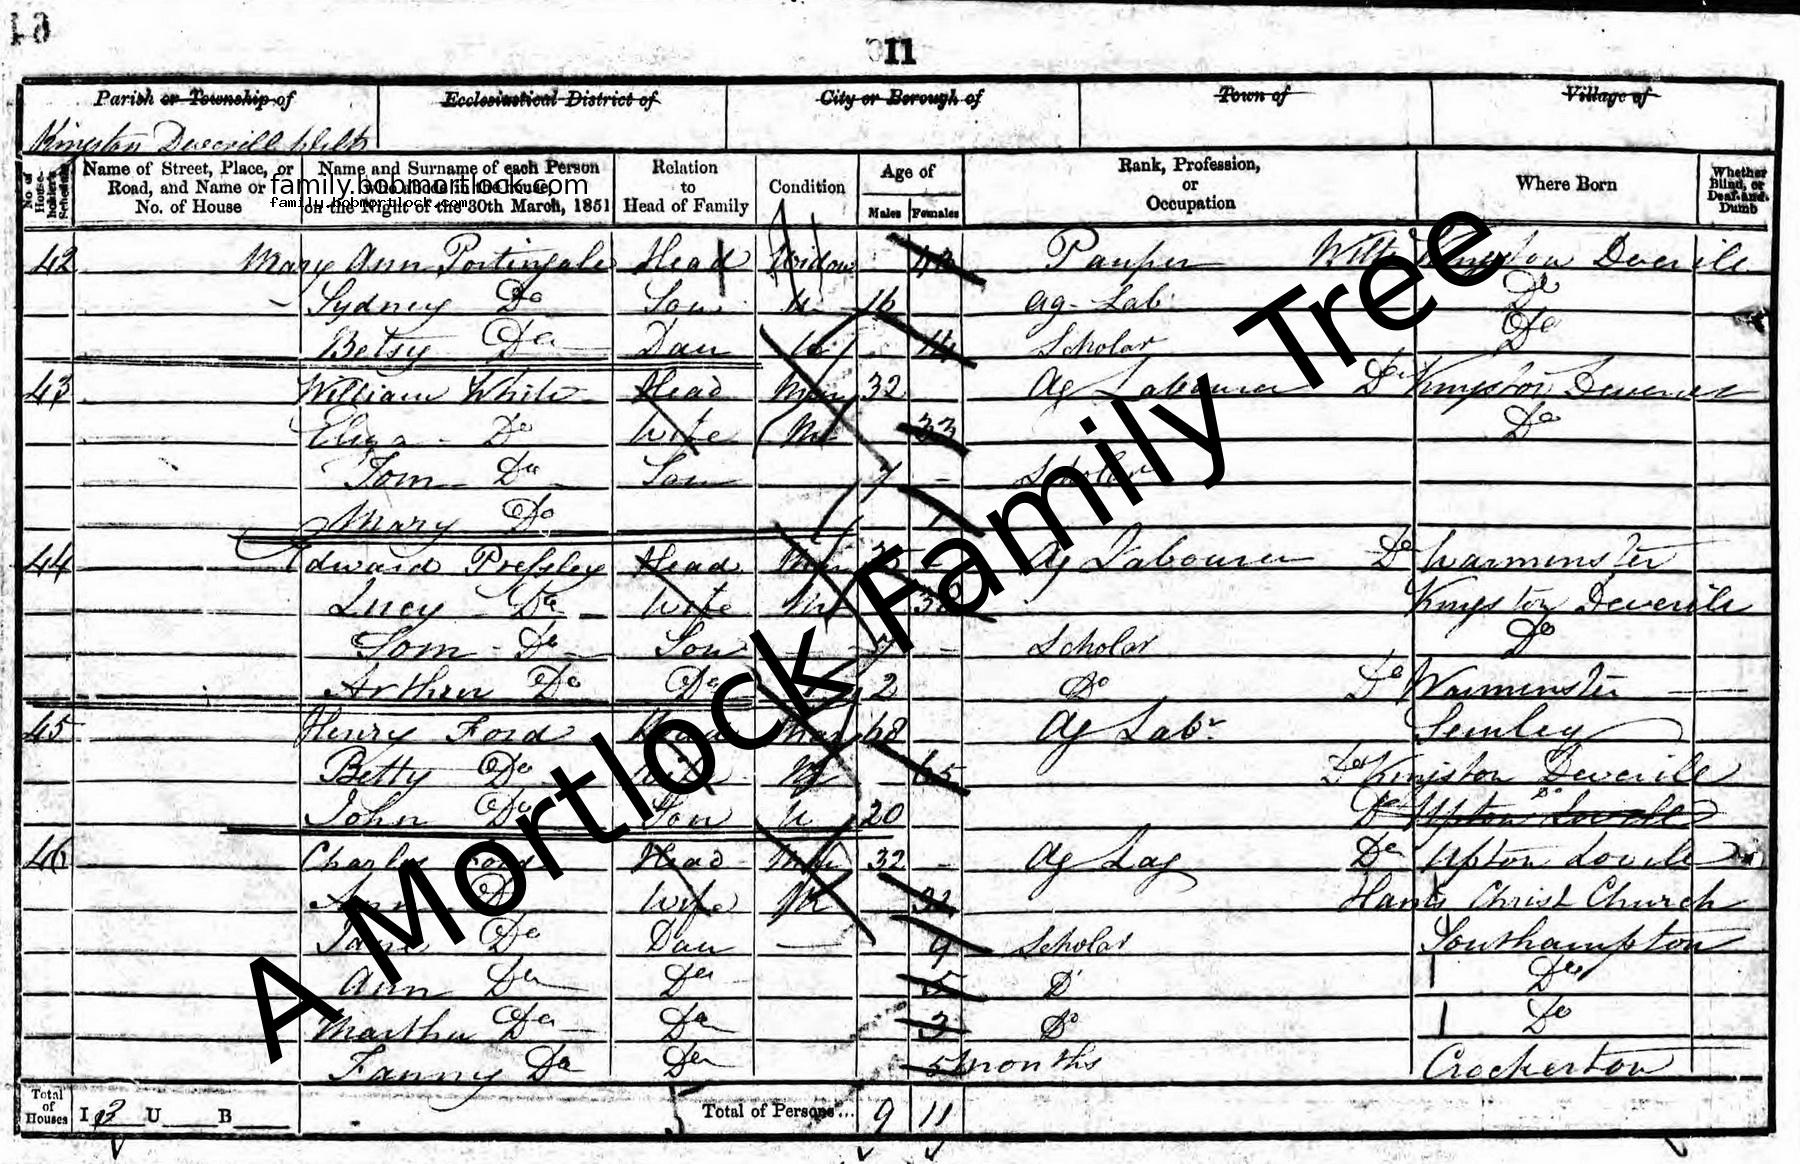 11
Parish or Township of Ecclesiastical District of City or Borough of Town of Village of
Kingston Deverill Wilts
No. of House-holder's Schedule Name of Street, Place, or Road, and Name or No. of House Name and Surname of each Person who abode in the house, on the Night of the 30th March, 1851 Relation to Head of Family Condition Age of Males Females Rank, Profession, or Occupation Where Born Whether Blind, or Deaf-and-Dumb
family.bobmortlock.com
family.bobmortlock.com
42 Mary Ann Portingale Head Widow Pauper Wilts Kingston Deverile
Sydney Do Son U 16 Ag- Lab Do
Betsy Do Dau U 14 Scholar Do
43 William White Head Mar 32 Ag Labourer Do Kingston Deverel
Eliza - Do Wife M 33 Do
Tom - Do Son 7 - Scholar
Mary Do 1
44 Edward Pressley Head Mar Ag Labourer Do Warminster
Lucy - Do Wife M Kingston Deverile
Tom - Do Son 7 - Scholar Do
Arthur Do Do 2 Do Do Warminster
45 Henry Ford Head Mar 68 Ag Labr Semley
Betty Do Wife M 65 Do Kingston Deverile
John Do Son U 20 Do Upton Lovell Do
46 Charles Ford Head Mar 32 - Ag Lag Do Upton Lovile
Ann D Wife M 32 Hants Christ Church
Jane Do Dau - 9 Scholar Southampton
Ann Do Do 5 D Do
Martha Do Do 3 Do Do
Fanny Do Do 5 months Crockerton
Total of Houses I 3 U B Total of Persons... 9 11
A Mortlock Family Tree